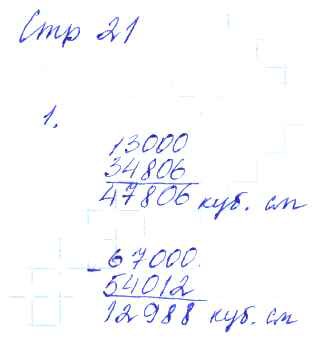 Стр 21
1.
13000
34806
47806 куб. см
- 67000.
54012
12988 куб. см